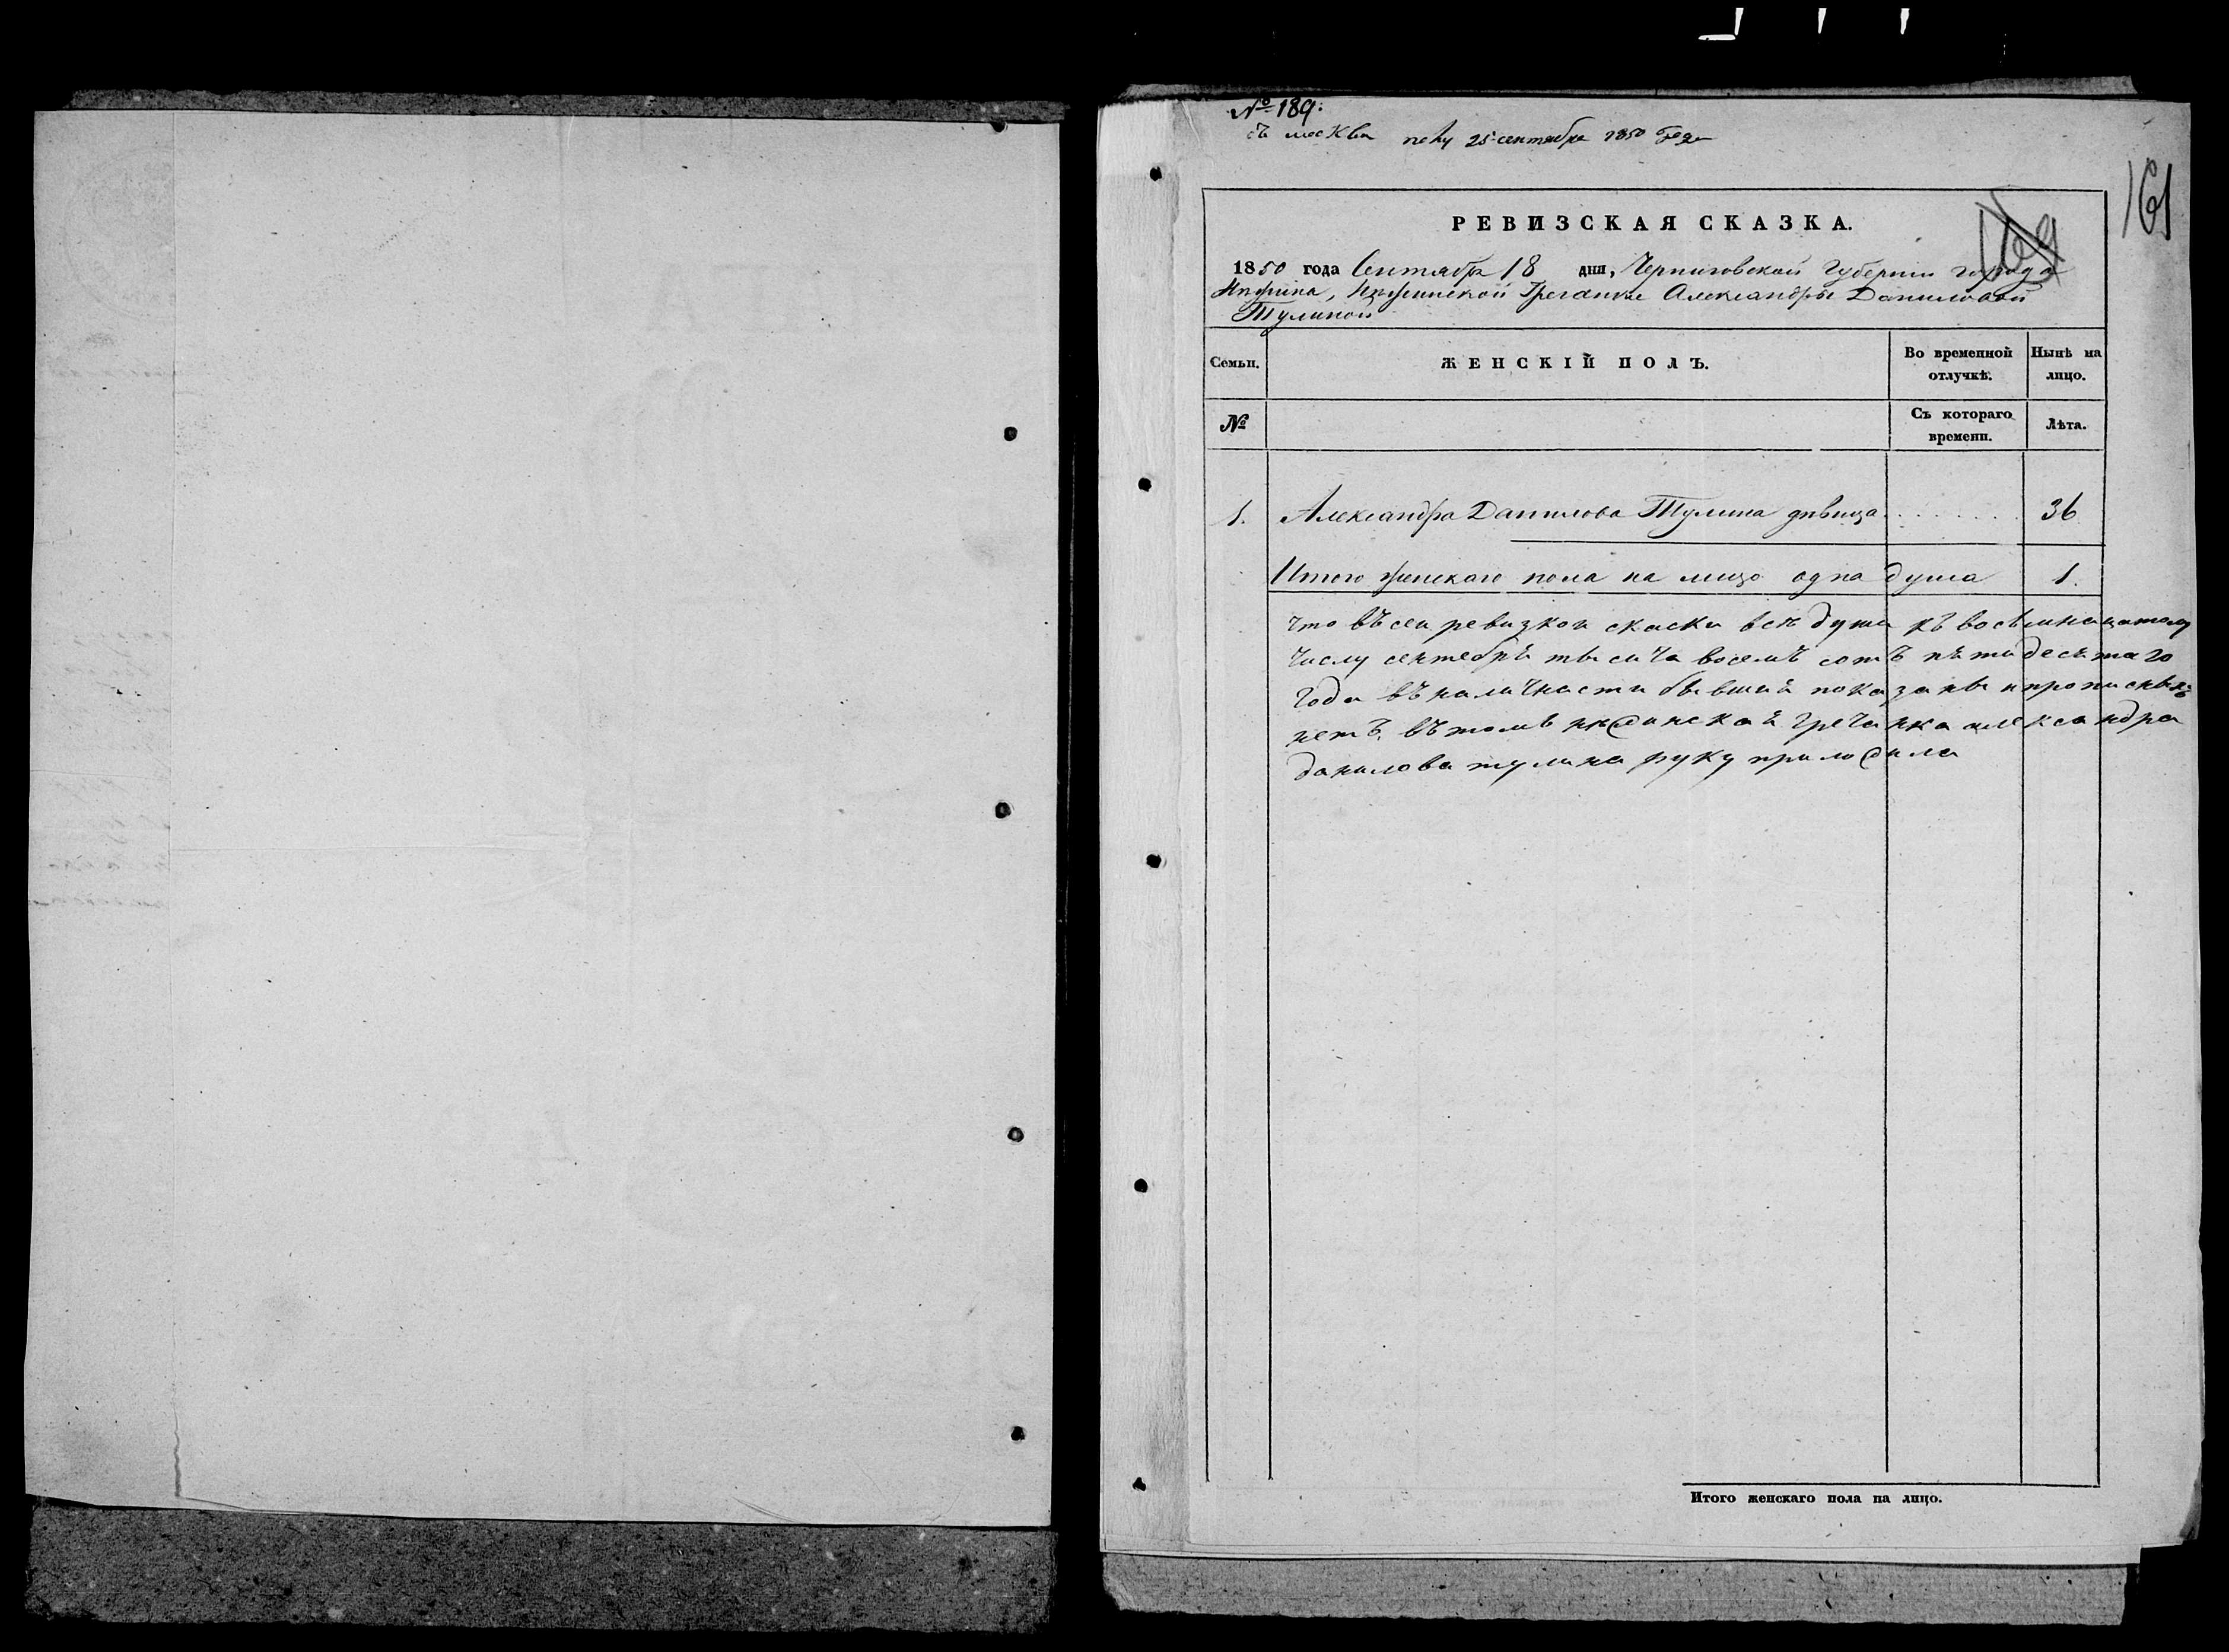 № 189:
съ москвы полу 25 сентебря 1850 года
161
169
РЕВИЗСКАЯ СКАЗКА.
1850 года Сентября 18 дня, Черниговской Губерніи города
Нѣжина, Нѣжинской Гречанки Александры Даниловой
Тулиной
Семьи.
ЖЕНСКІЙ ПОЛЪ.
Во временной отлучкѣ.
Нынѣ на лицо.
№
Съ котораго времени.
Лѣта.
1. Александра Данилова Тулина дѣвица 36
Итого женскаго пола на лицо одна душа 1.
что въ сеи ревизкои скаски всѣ души къ восьмнацатому
числу сентебрѣ тысѣча восемъ сотъ пѣтидесѣтаго
года въ наличнасти бывшиѣ показаны и прописныхъ
нетъ. въ томъ нѣжинскаѣ гречанка александра
данилова тулина руку приложила
Итого женскаго пола на лицо.